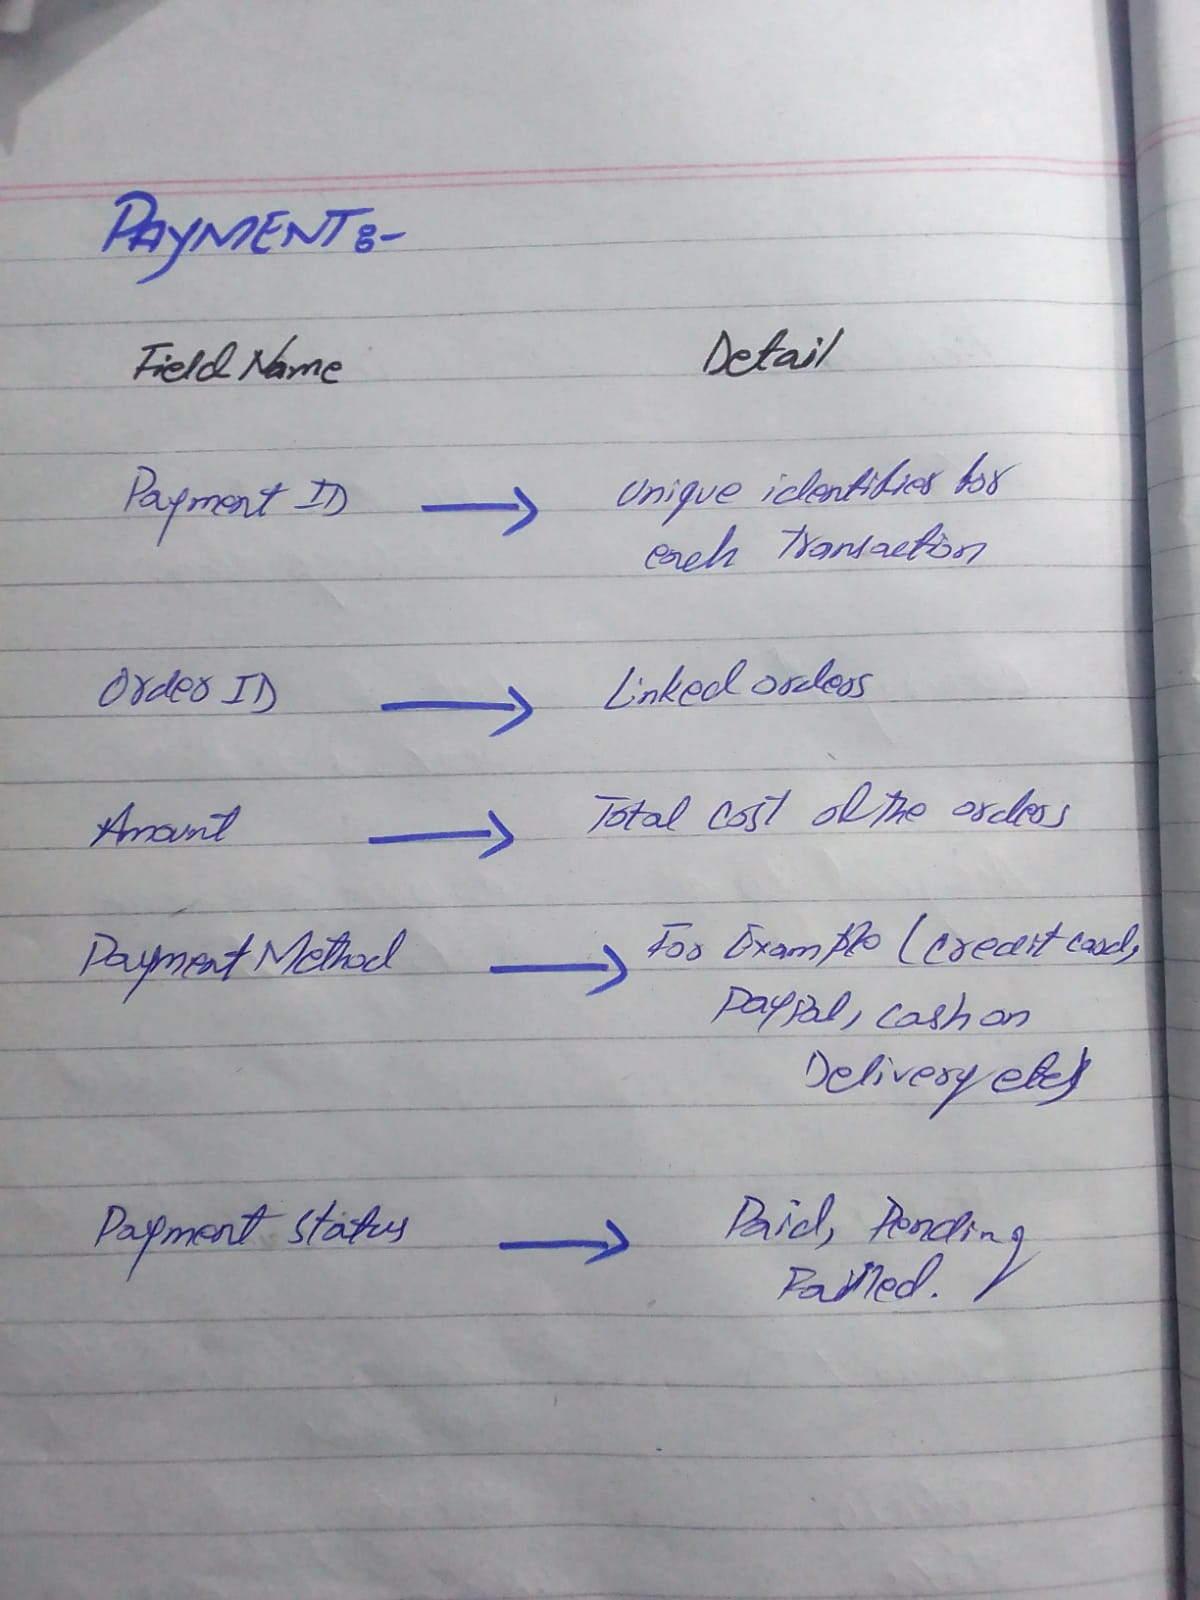 PAYMENT:-
Field Name Detail
Payment ID → Unique identifier for
each Transaction
Order ID → Linked orders
Amount → Total cost of the orders
Payment Method → For Example (credit card,
PayPal, cash on
Delivery etc)
Payment Status → Paid, Pending
Failed.